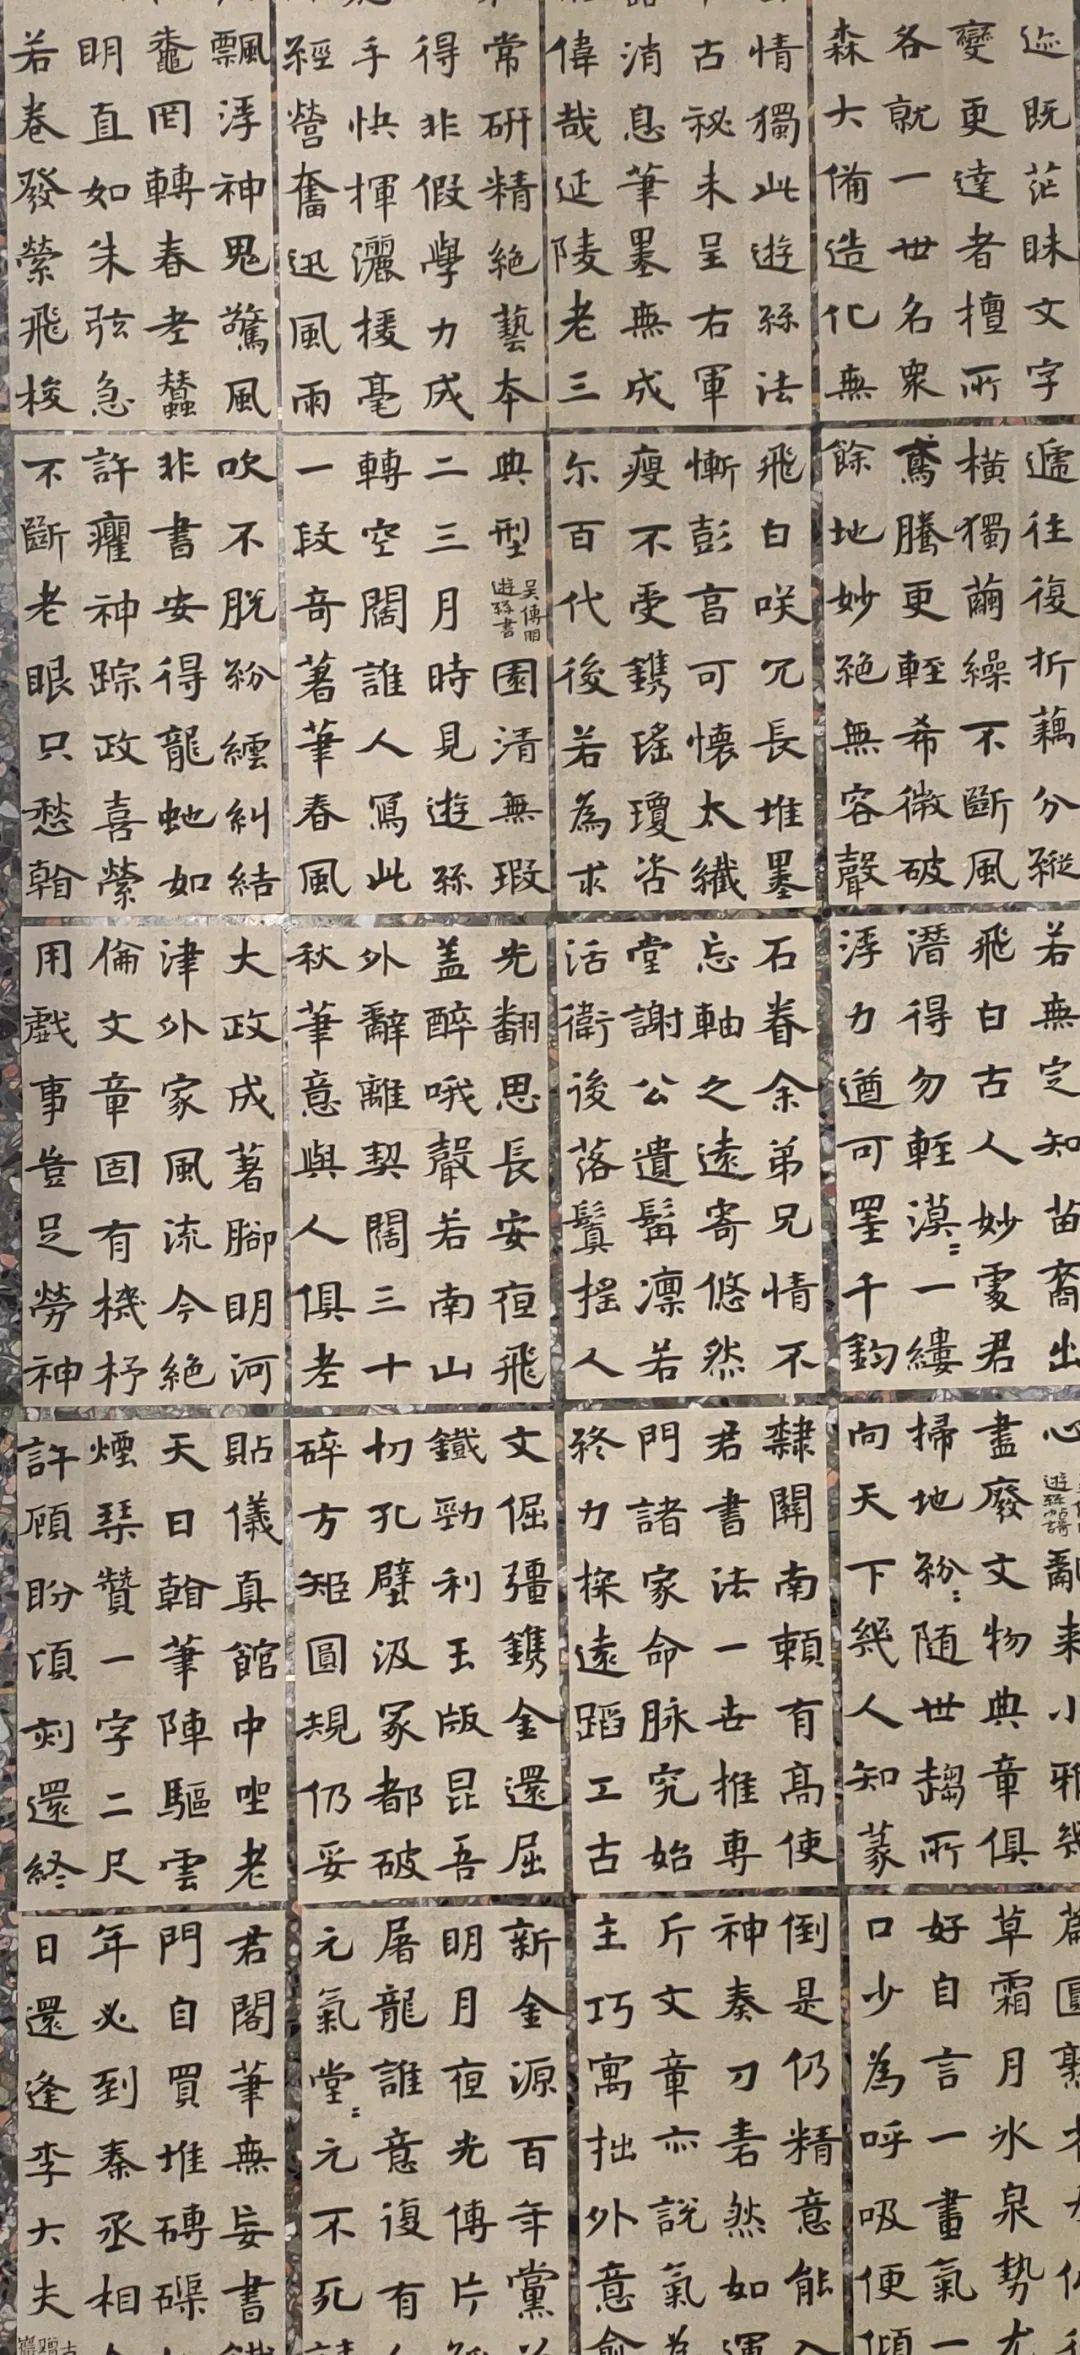 迹既茫昧文字
變更達者擅所
各就一世名衆
森大備造化無
情獨此遊絲法
古祕未呈右軍
消息筆墨無成
偉哉延陵老三
常研精絕藝本
得非假學力成
手快揮灑援毫
經營奮迅風雨
飄浮神鬼驚風
罔轉春老蠶
明直如朱弦急
若卷發縈飛梭
遞往復折藕分縱
橫獨繭繰不斷風
鳶騰更輕希微破
餘地妙絕無容聲
飛白咲冗長堆墨
慚彭亯可懷太纖
瘦不受鐫瑤瓊咨
尔百代後若為求
典型吳傅朋遊絲書園清無瑕
二三月時見遊絲
轉空闊誰人寫此
一段奇著筆春風
吹不脫紛紜糾結
非書安得龍虵如
許癯神踪政喜縈
不斷老眼只愁翰
若無定知苗裔出
飛白古人妙處君
潛得勿輕漠〻一縷
浮力遒可罣千鈞
石眷余弟兄情不
忘軸之遠寄悠然
堂謝公遺髯凛若
活衛後落鬒搖人
光翻思長安夜飛
蓋醉哦聲若南山
外辭離契闊三十
秋筆意與人俱老
大政成著腳明河
津外家風流今絕
倫文章固有機杼
用戲事豈足勞神
心遊絲亂來小雅幾
盡廢文物典章俱
掃地紛〻隨世趨所
向天下幾人知篆
隸關南賴有高使
君書法一世推專
門諸家命脉究始
終力探遠蹈工古
文倔彊鐫金還屈
鐵勁利玉版昆吾
切孔壁汲冢都破
碎方矩圓規仍妥
貼儀真館中坐老
天日翰筆陣驅雲
煙琴贊一字二尺
許顧盼頃刻還終
篇圓熟
草霜月氷泉勢尤
好自言一畫氣一
口少為呼吸便傾
倒是仍精意能入
神奏刀砉然如運
斤文章亦説氣為
主巧寓拙外意愈
新金源百年黨
明月夜光傳片
屠龍誰意復有
元氣堂〻元不死
君閣筆無妄書
門自買堆磚磲
年必到秦丞相
日還逢李大夫